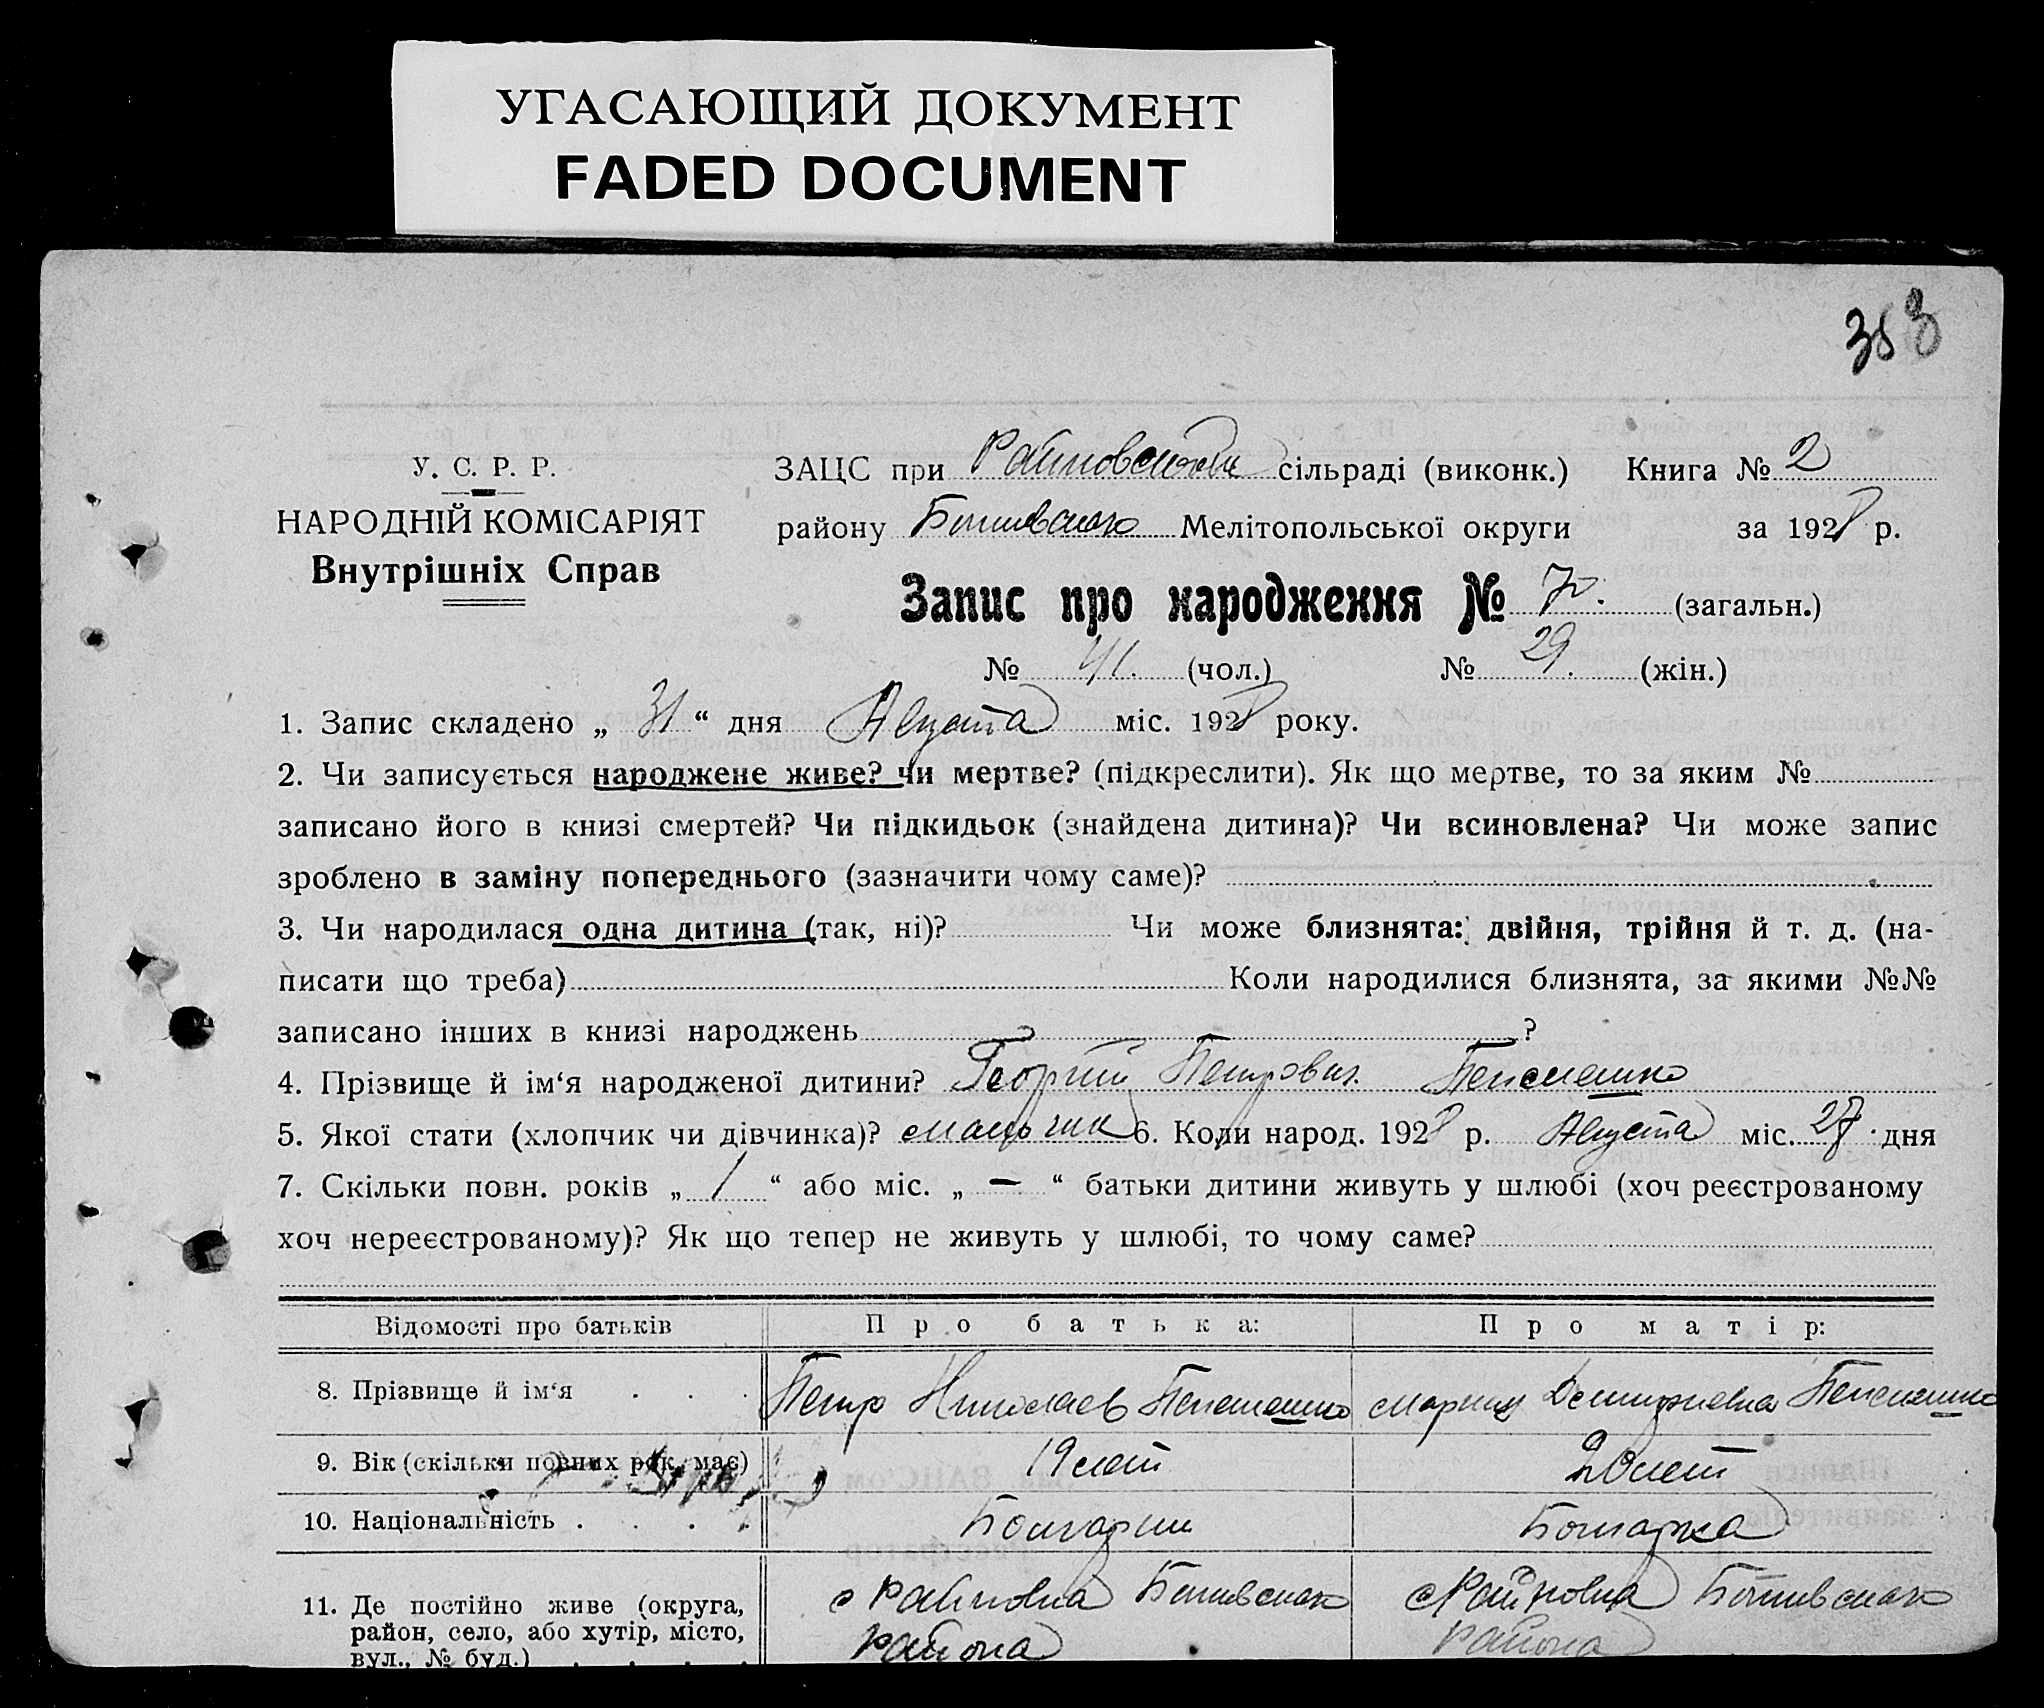 УГАСАЮЩИЙ ДОКУМЕНТ
FADED DOCUMENT
383
У. С. Р. Р.
НАРОДНІЙ КОМІСАРІЯТ
Внутрішніх Справ
ЗАЦС при Райновской сільраді (виконк.) Книга № 2
району Ботиевского Мелітопольської округи за 1928 р.
Запис про народження № 70. (загальн.)
№ 41. (чол.) № 29. (жін.)
1. Запис складено „ 31 “ дня Августа міс. 1928 року.
2. Чи записується народжене живе? чи мертве? (підкреслити). Як що мертве, то за яким №
записано його в книзі смертей? Чи підкидьок (знайдена дитина)? Чи всиновлена? Чи може запис
зроблено в заміну попереднього (зазначити чому саме)?
3. Чи народилася одна дитина (так, ні)? Чи може близнята: двійня, трійня й т. д. (на-
писати що треба) Коли народилися близнята, за якими №№
записано інших в книзі народжень ?
4. Прізвище й ім‘я народженої дитини? Георгий Петрович
5. Якої стати (хлопчик чи дівчинка)? мальчик 6. Коли народ. 1928 р. Августа міс. 27 дня
7. Скільки повн. років „ 1 “ або міс. „ — “ батьки дитини живуть у шлюбі (хоч реєстрованому
хоч нереєстрованому)? Як що тепер не живуть у шлюбі, то чому саме?
Відомості про батьків Про батька: Про матір:
8. Прізвище й ім‘я . . . Петр Николаев Мария
9. Вік (скільки повних рок. має) 19 лет 20 лет
10. Національність . . . . Болгарин Болгарка
11. Де постійно живе (округа, с Райновка Ботиевского с Райновка Ботиевского
район, село, або хутір, місто, района района
вул., № буд.) . . . .